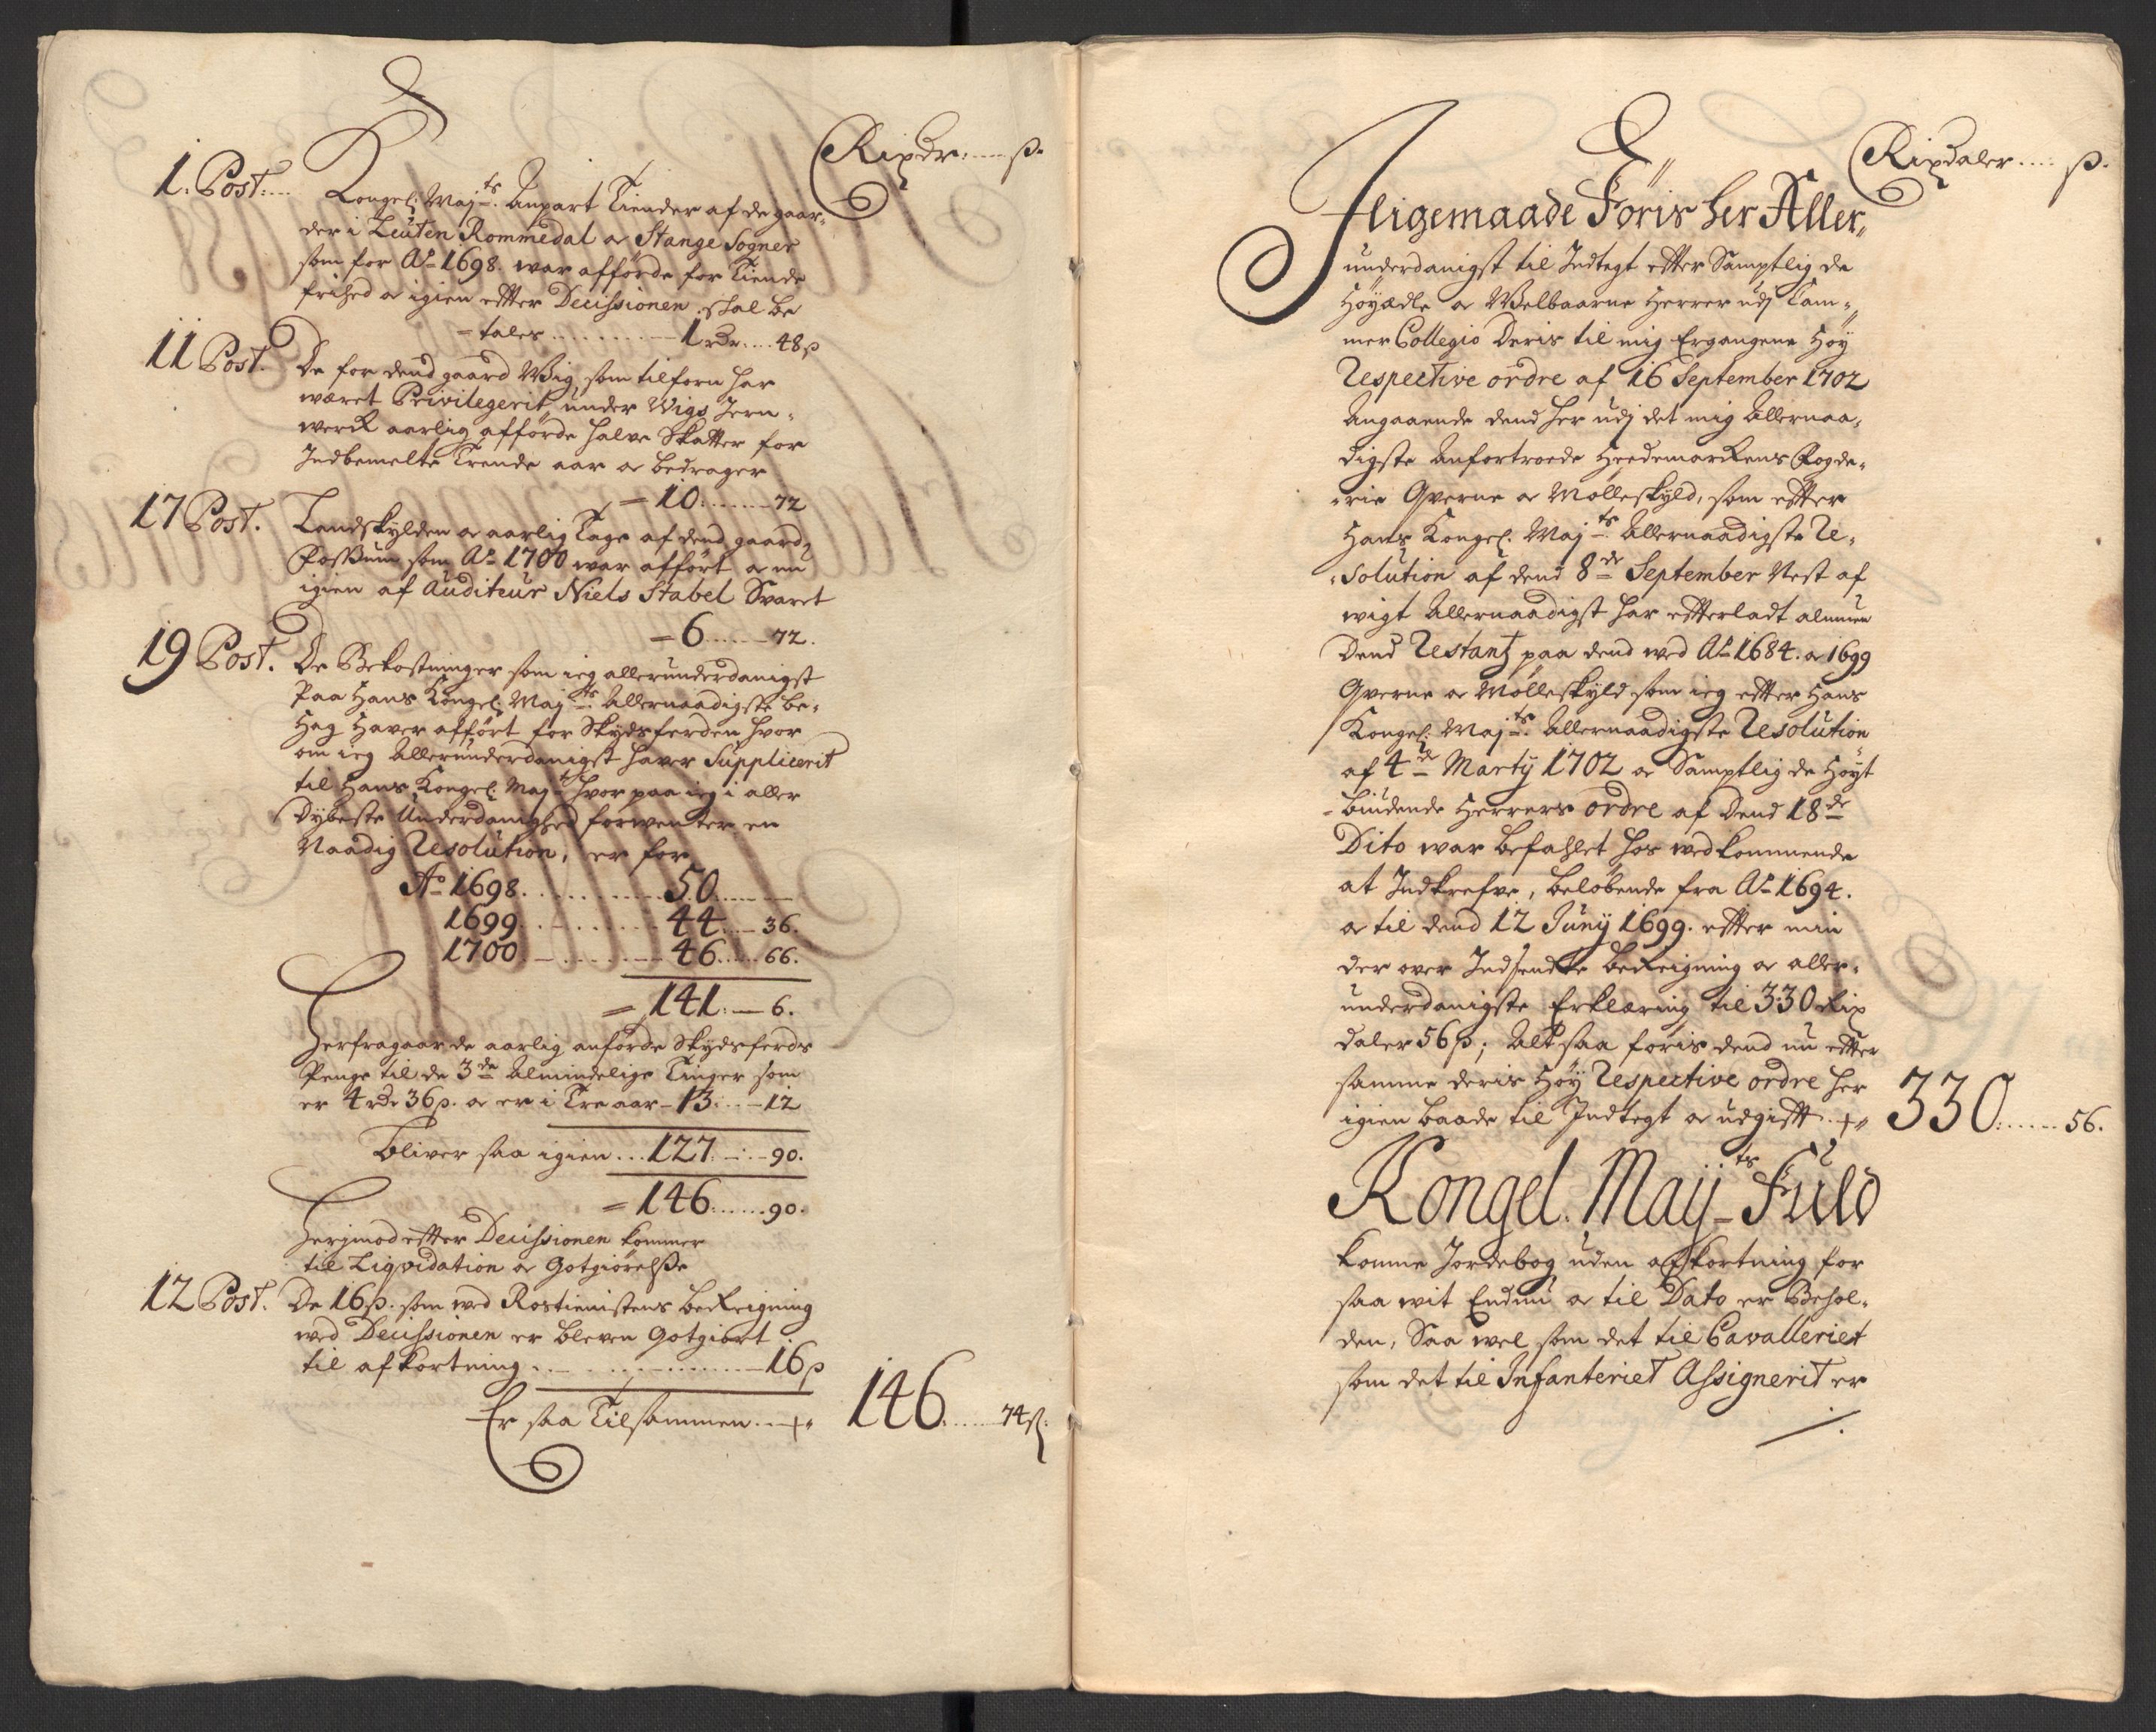 Rixdr: ..... ß.
1. Post: ... Kongel: Maj:ts Anpart Tiender af de gaar-
der i Leuten Rommedal oc Stange Sogner
som for Ao 1698. war afförde for Tiende
frihed oc igien effter Decissionen skal be
= tales .......... 1 rdr .... 48 ß
11 Post. De for dend gaard Wig, som tilforn har
wæret Privilegerit under Wigs Jern-
werck aarlig afförde halve Skatter for
Indbemelte Trende aar oc bedrager
= 10: ...... 72
17 Post. Landskylden oc aarlig Tage af dend gaard
Fossum som Ao 1700 war affört oc nu
igien af Auditeur Niels Stabel Svaret
= 6 ...... 72.
19 Post. De Bekostninger som ieg allerunderdanigst
Paa Hans Kongel: Maj:ts Allernaadigste be-
Hag Haver affört for Skydsferden hvor
om ieg Allerunderdanigst haver Supplicerit
til Hans Kongel: Maj:t hvor paa ieg i aller
Dybeste Underdanighed forwenter en
Naadig Resolution, er for
Ao 1698. .......... 50. ......
1699. .......... 44 .... 36.
1700. .......... 46 ..... 66.
= 141: — 6.
Herfragaar de aarlig anförde Skydsferds
Penge til de 3de Almindelige Tinger som
er 4 rdr 36 ß. oc er i Tre aar - 13: ... 12
Bliver saa igien ... 127: ... 90.
= 146: ..... 90.
Herimod effter Decissionen kommer
til Liqvidation oc Gotgiörelße
12 Post. De 16 ß. som wed Rostienistens beReigning
wed Decissionen er bleven Gotgiort
til afkortning .......... 16 ß
Er saa Tilsammen ... 146. ..... 74 ß.
Rixdaler .... ß.
Iligemaade Föris her Aller-
underdanigst til Indtegt effter Samptlig de
Höyædle oc Welbaarne Herrer udj Cam-
mer Collegio Deris til mig Ergangene Höy
Respective ordre af 16 September 1702
Angaaende dend her udj det mig Allernaa-
digste Anfortroede Heedemarckens Fogde-
rie Qverne oc Mölleskyld, som effter
Hans Kongel: Maj:ts Allernaadigste Re-
solution af dend 8de September Nest af
wigt Allernaadigst har effterladt almuen
Dend Restantz paa dend wed Ao 1684. oc 1699
Qverne oc Mölleskyld som ieg effter Hans
Kongel: Maj:ts Allernaadigste Resolution
af 4de Marty 1702 oc Samptlig de Höyt
biudende Herrers ordre af Dend 18de
Dito war befahlet hos wedkommende
at Indkrefve, belöbende fra Ao 1694.
oc til dend 12 Juny 1699. effter min
der over Indsendte beReigning oc aller-
underdanigste Erklæring til 330 Rix
daler 56 ß; Alt saa föris dend nu effter
samme deris Höy Respective ordre her
igien baade til Indtegt oc udgifft 330: ..... 56.
Kongel. Maij:ts Fuld
komne Jordebog uden afkortning for
saa wit Endnu oc til Dato er Behol-
den, Saa wel som det til Cavalleriet
som det til Infanteriet Assignerit er